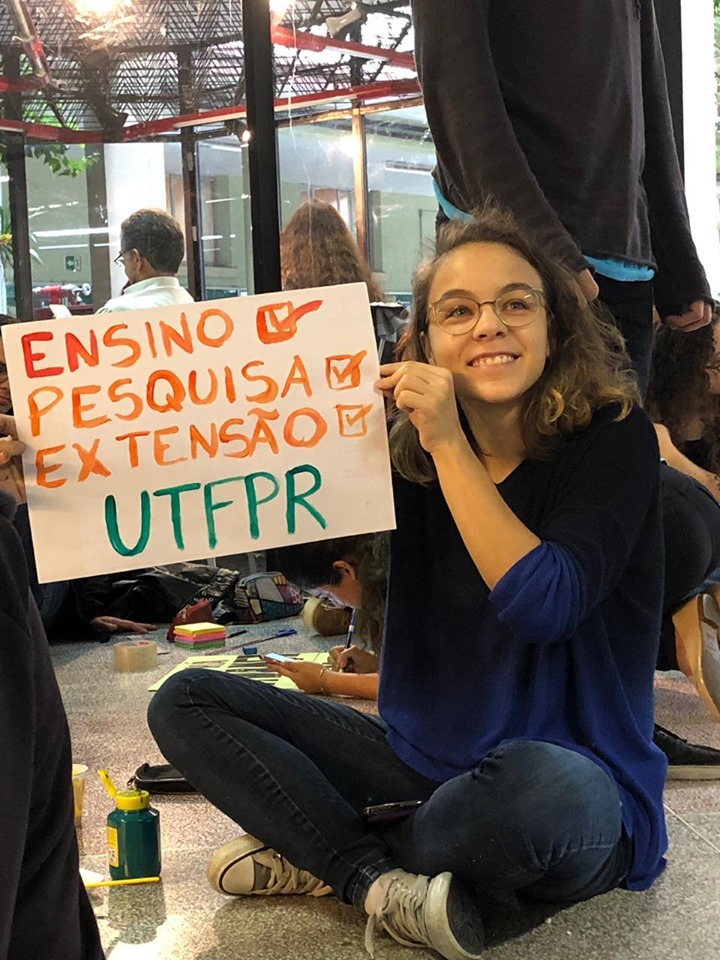 ENSINO ☑
PESQUISA ☑
EXTENSÃO ☑
UTFPR